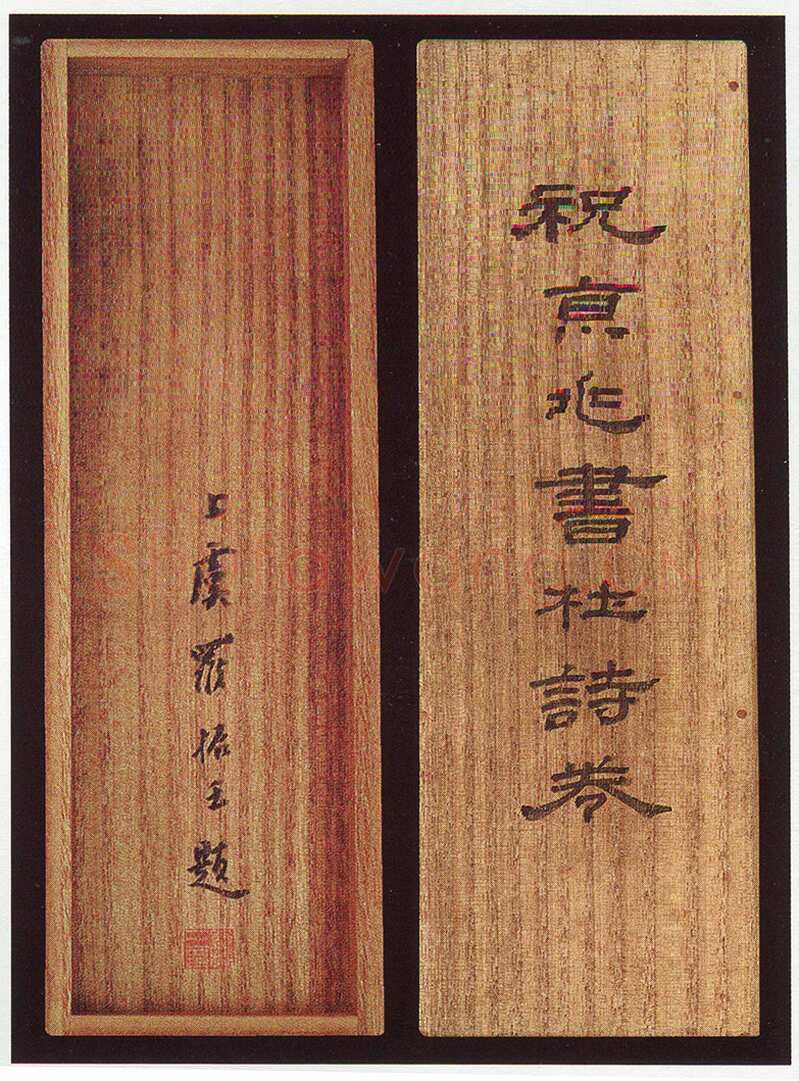 祝京兆書杜詩卷
上虞羅振玉題